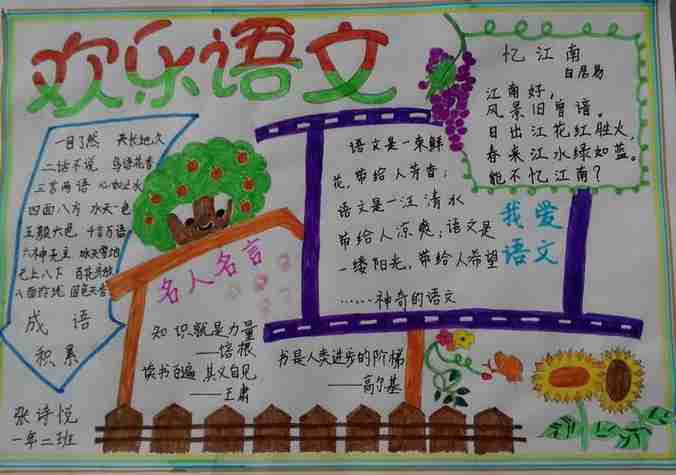 欢乐语文
忆江南
白居易
江南好，
风景旧曾谙。
日出江花红胜火，
春来江水绿如蓝。
能不忆江南？
一目了然 天长地久
二话不说 鸟语花香
三言两语 心如止水
四面八方 水天一色
五颜六色 千言万语
六神无主 冰天雪地
七上八下 百花齐放
八面玲珑
成语
积累
语文是一束鲜
花，带给人芳香；
语文是一汪清水
带给人凉爽；语文是
一缕阳光，带给人希望
……神奇的语文
我爱
语文
名人名言
知识就是力量
——培根
读书百遍 其义自见
——王肃
书是人类进步的阶梯
——高尔基
张诗悦
一年二班